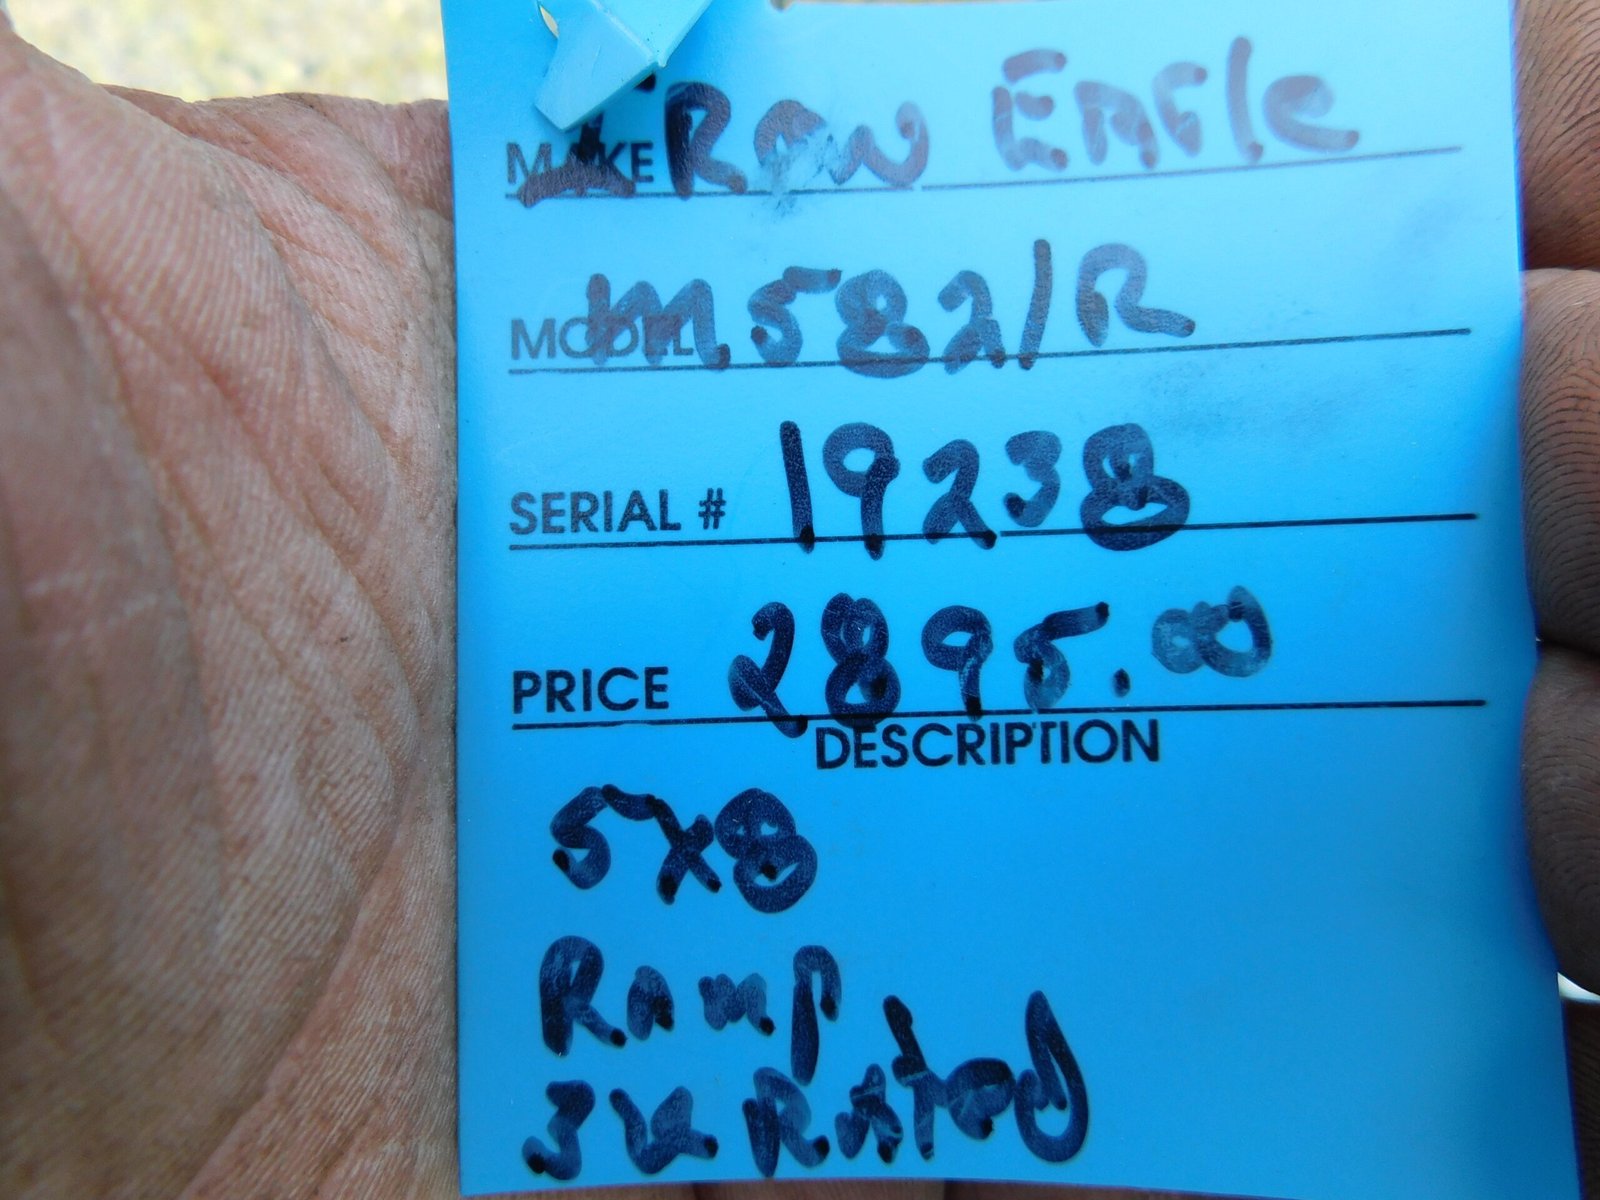 MAKE IRON EAGLE
MODEL M5821R
SERIAL # 19238
PRICE 2895.00
DESCRIPTION
5x8
Ramp
3K Rated